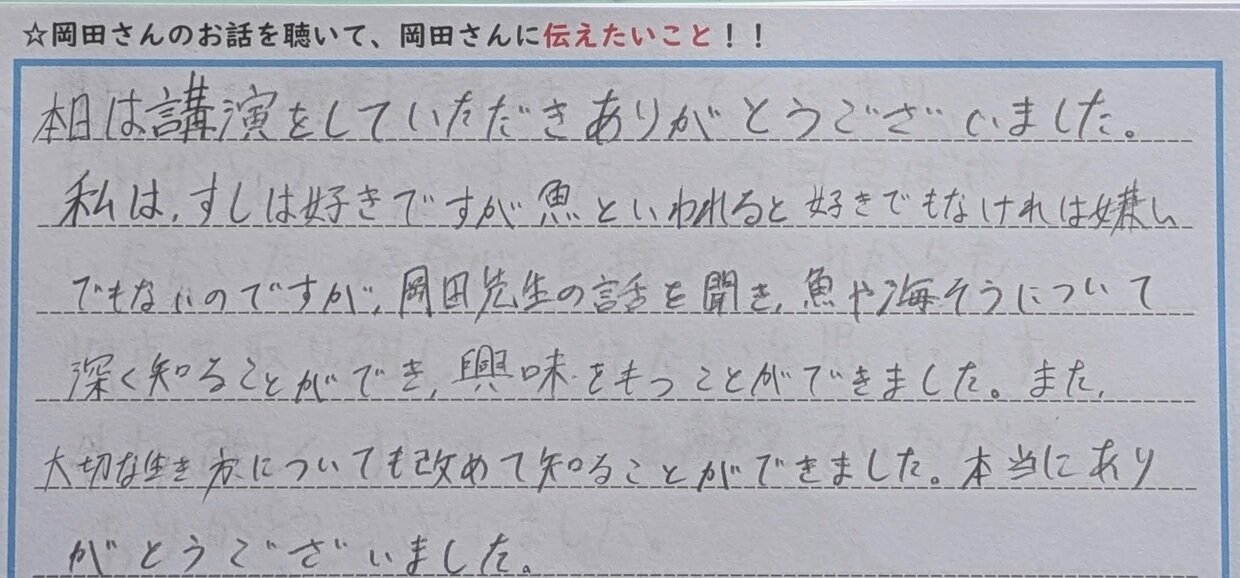 ☆岡田さんのお話を聴いて、岡田さんに伝えたいこと！！
本日は講演をしていただきありがとうございました。
私は、すしは好きですが魚といわれると好きでもなければ嫌い
でもないのですが、岡田先生の話を聞き、魚や海そうについて
深く知ることができ、興味をもつことができました。また、
大切な生き方についても改めて知ることができました。本当にあり
がとうございました。